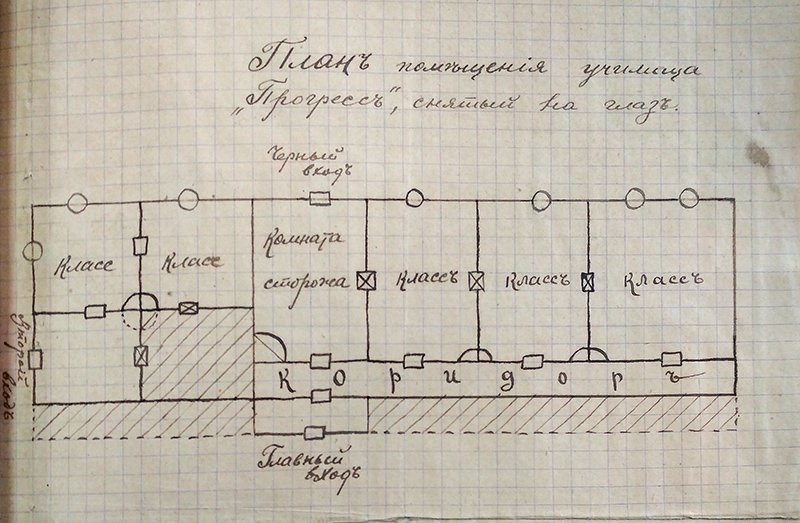 Планъ помѣщенія училища
„Прогрессъ“, снятый на глазъ.
Черный
входъ
Класс
Класс
Комната
сторожа
Классъ
Классъ
Классъ
Второй
входъ
Коридоръ
Главный
входъ